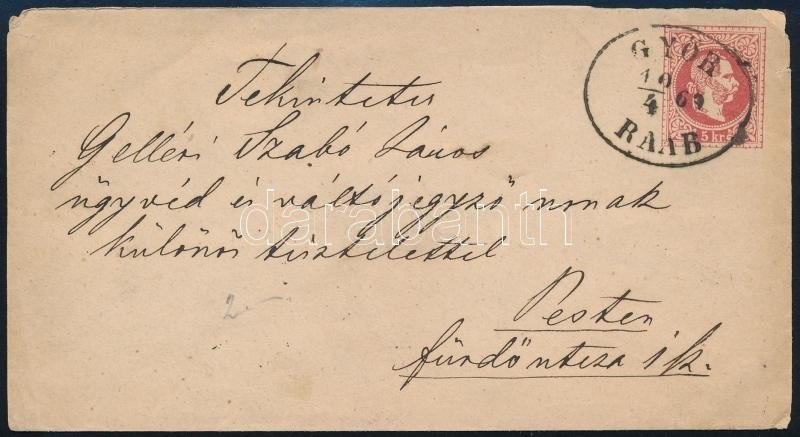 GYŐR
10/4 69
RAAB
5 kr.
Tekintetes
Gelléri Szabó János
ügyvéd és váltójegyző urnak
különös tisztelettel
Pesten
fürdőutcza 1 sz.
2
darabanth